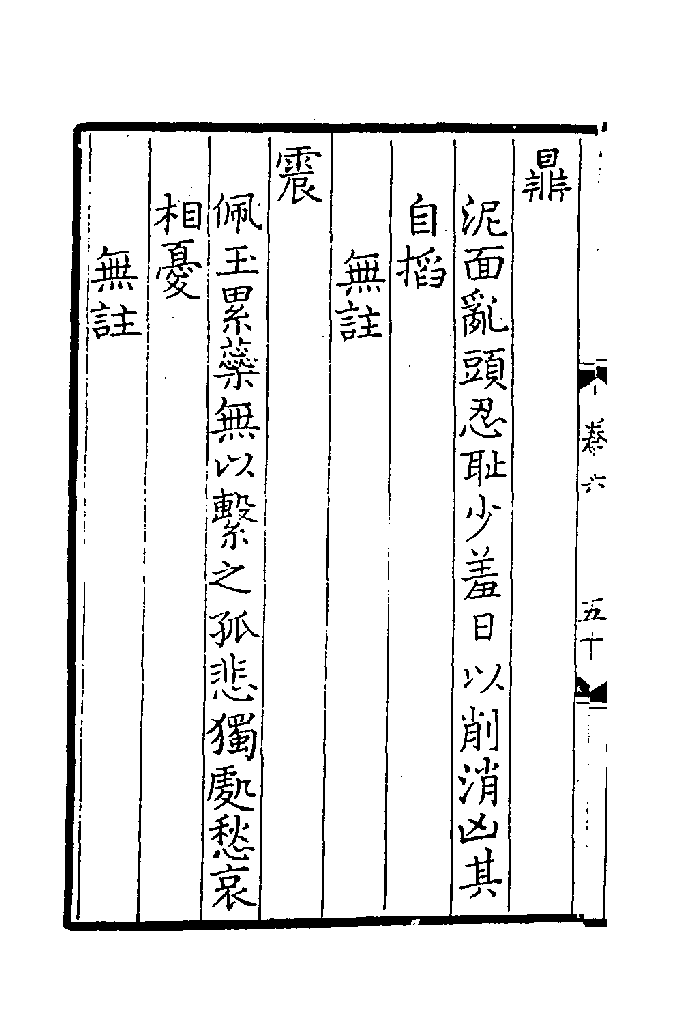 鼎
泥面亂頭忍耻少羞日以削消凶其
自搯
無註
震
佩玉累蘂無以繫之孤悲獨處愁哀
相憂
無註
卷六
五十